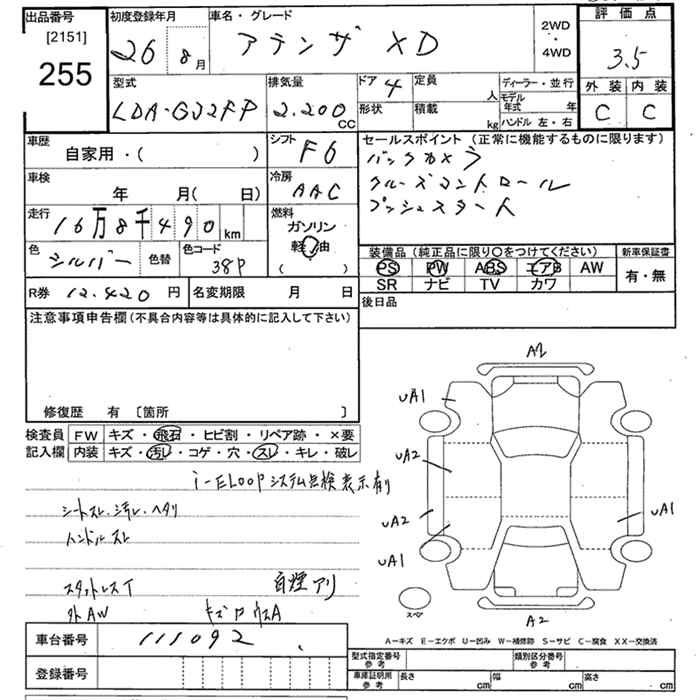 出品番号
[2151]
255
初度登録年月
26 8月
車名・グレード
アテンザ XD
2WD
・
4WD
評価点
3.5
外装 内装
C C
型式
LDA-GJ2FP
排気量
2.200
CC
ドア 4
形状
定員
人
積載
kg
ディーラー・並行
モデル年式 年
ハンドル 左・右
車歴
自家用・( )
シフト
F6
車検
年 月( 日)
冷房
AAC
走行
16万8千490 km
燃料
ガソリン
軽油
( )
色
シルバー
色替
色コード
38P
セールスポイント (正常に機能するものに限ります)
バックカメラ
クルーズコントロール
プッシュスタート
装備品(純正品に限り○をつけてください)
新車保証書
PS PW ABS エアB AW
SR ナビ TV カワ
有・無
R券 12.420 円
名変期限 月 日
後日品
注意事項申告欄(不具合内容等は具体的に記入して下さい)
修復歴 有 〔箇所 〕
検査員
記入欄
FW キズ・飛石・ヒビ割・リペア跡・×要
内装 キズ・汚レ・コゲ・穴・スレ・キレ・破レ
i-ELOOPシステム点検表示有り
シートスレ・汚レ・ヘタリ
ハンドルスレ
スタットレスT
自煙アリ
外AW
A2
UA1
UA2
UA2
UA1
UA1
スペア
A2
A－キズ E－エクボ U－凹み W－補修跡 S－サビ C－腐食 XX－交換済
車台番号
111092
登録番号
型式指定番号
参考
類別区分番号
参考
車庫証明用
参考
長さ cm 幅 cm 高さ cm